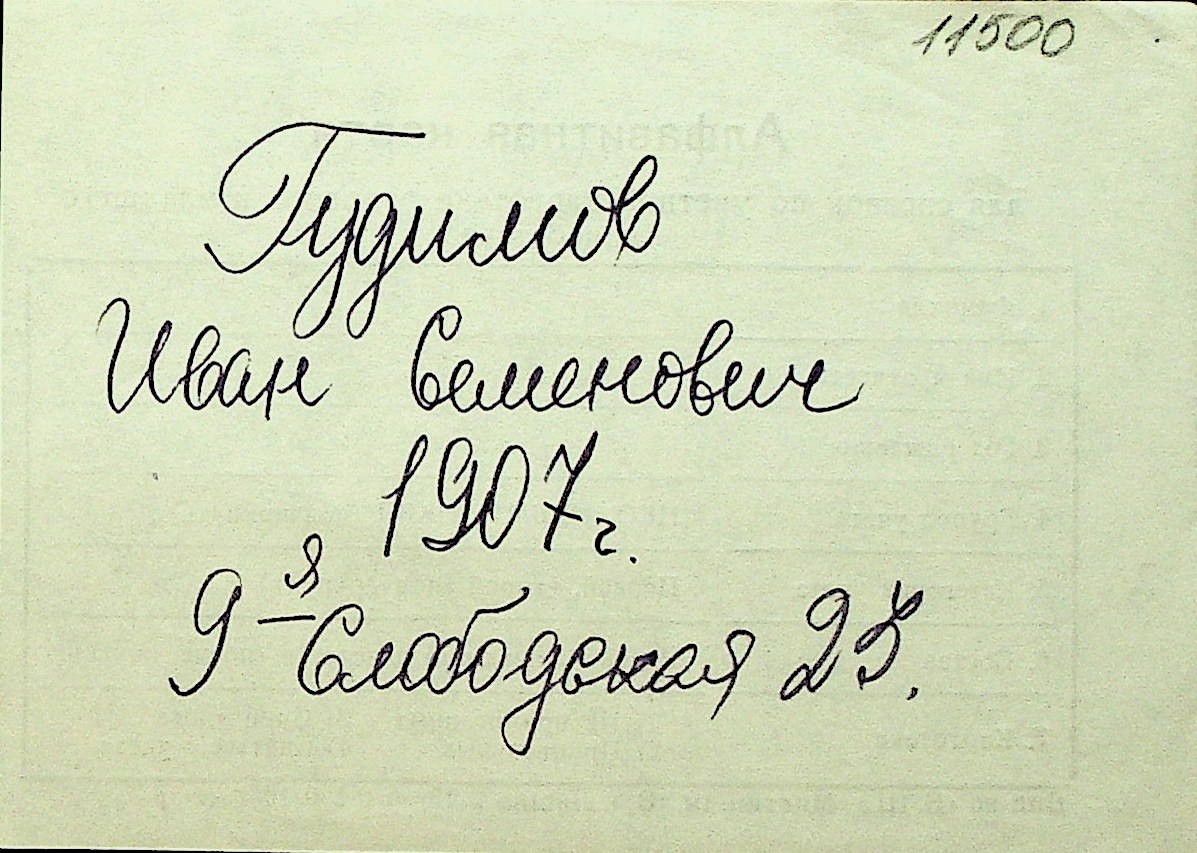 11500
Гудимов
Иван Семенович
1907 г.
9-я Слободская 25.